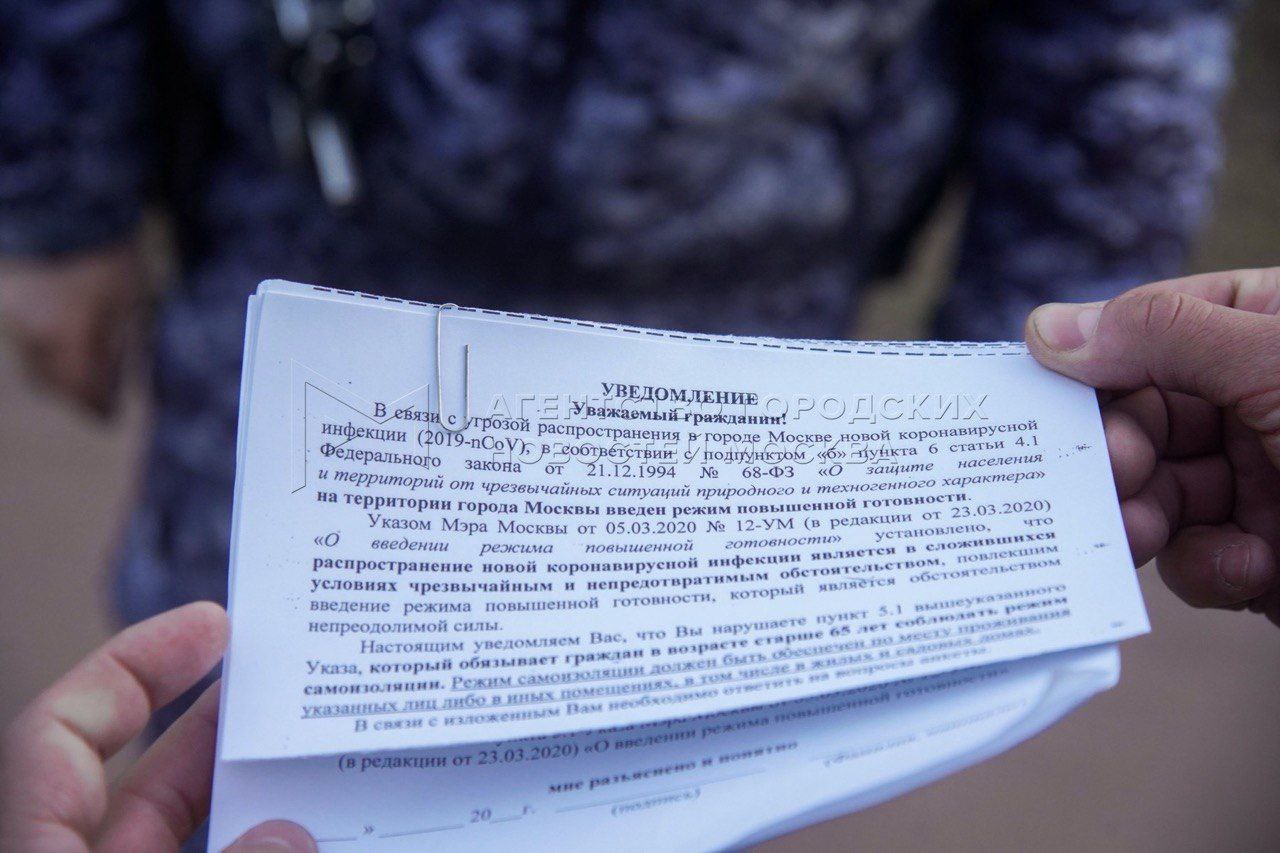 УВЕДОМЛЕНИЕ
Уважаемый гражданин!
В связи с угрозой распространения в городе Москве новой коронавирусной
инфекции (2019-nCoV), в соответствии с подпунктом «б» пункта 6 статьи 4.1
Федерального закона от 21.12.1994 № 68-ФЗ «О защите населения
и территорий от чрезвычайных ситуаций природного и техногенного характера»
на территории города Москвы введен режим повышенной готовности.
Указом Мэра Москвы от 05.03.2020 № 12-УМ (в редакции от 23.03.2020)
«О введении режима повышенной готовности» установлено, что
распространение новой коронавирусной инфекции является в сложившихся
условиях чрезвычайным и непредотвратимым обстоятельством, повлекшим
введение режима повышенной готовности, который является обстоятельством
непреодолимой силы.
Настоящим уведомляем Вас, что Вы нарушаете пункт 5.1 вышеуказанного
Указа, который обязывает граждан в возрасте старше 65 лет соблюдать режим
самоизоляции. Режим самоизоляции должен быть обеспечен по месту проживания
указанных лиц либо в иных помещениях, в том числе в жилых и садовых домах.
В связи с изложенным Вам необходимо ответить на вопросы анкеты.
(в редакции от 23.03.2020) «О введении режима повышенной готовности».
мне разъяснено и понятно
(подпись)
» 20 г.
АГЕНТСТВО ГОРОДСКИХ
НОВОСТЕЙ МОСКВА